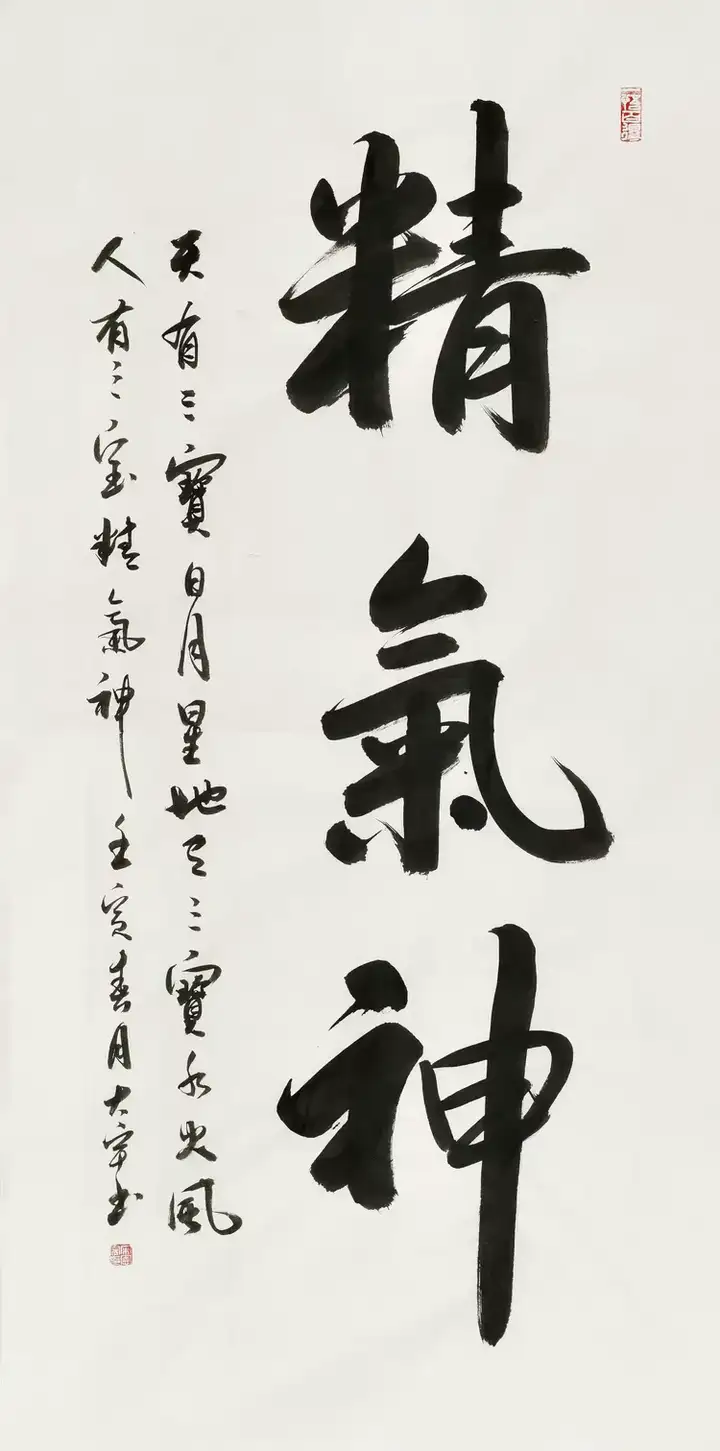 精氣神
天有三寶日月星地有三寶水火風
人有三宝精氣神壬寅春月大宇书